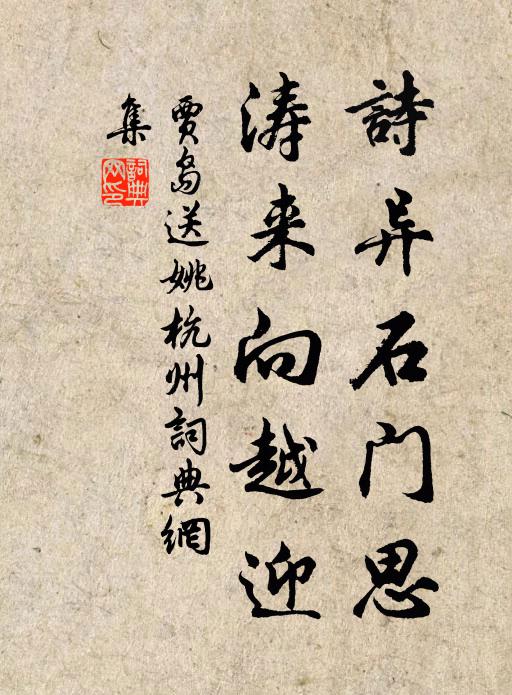 詩异石门思
涛来向越迎
贾岛送姚杭州詞典網
集
詞典網印